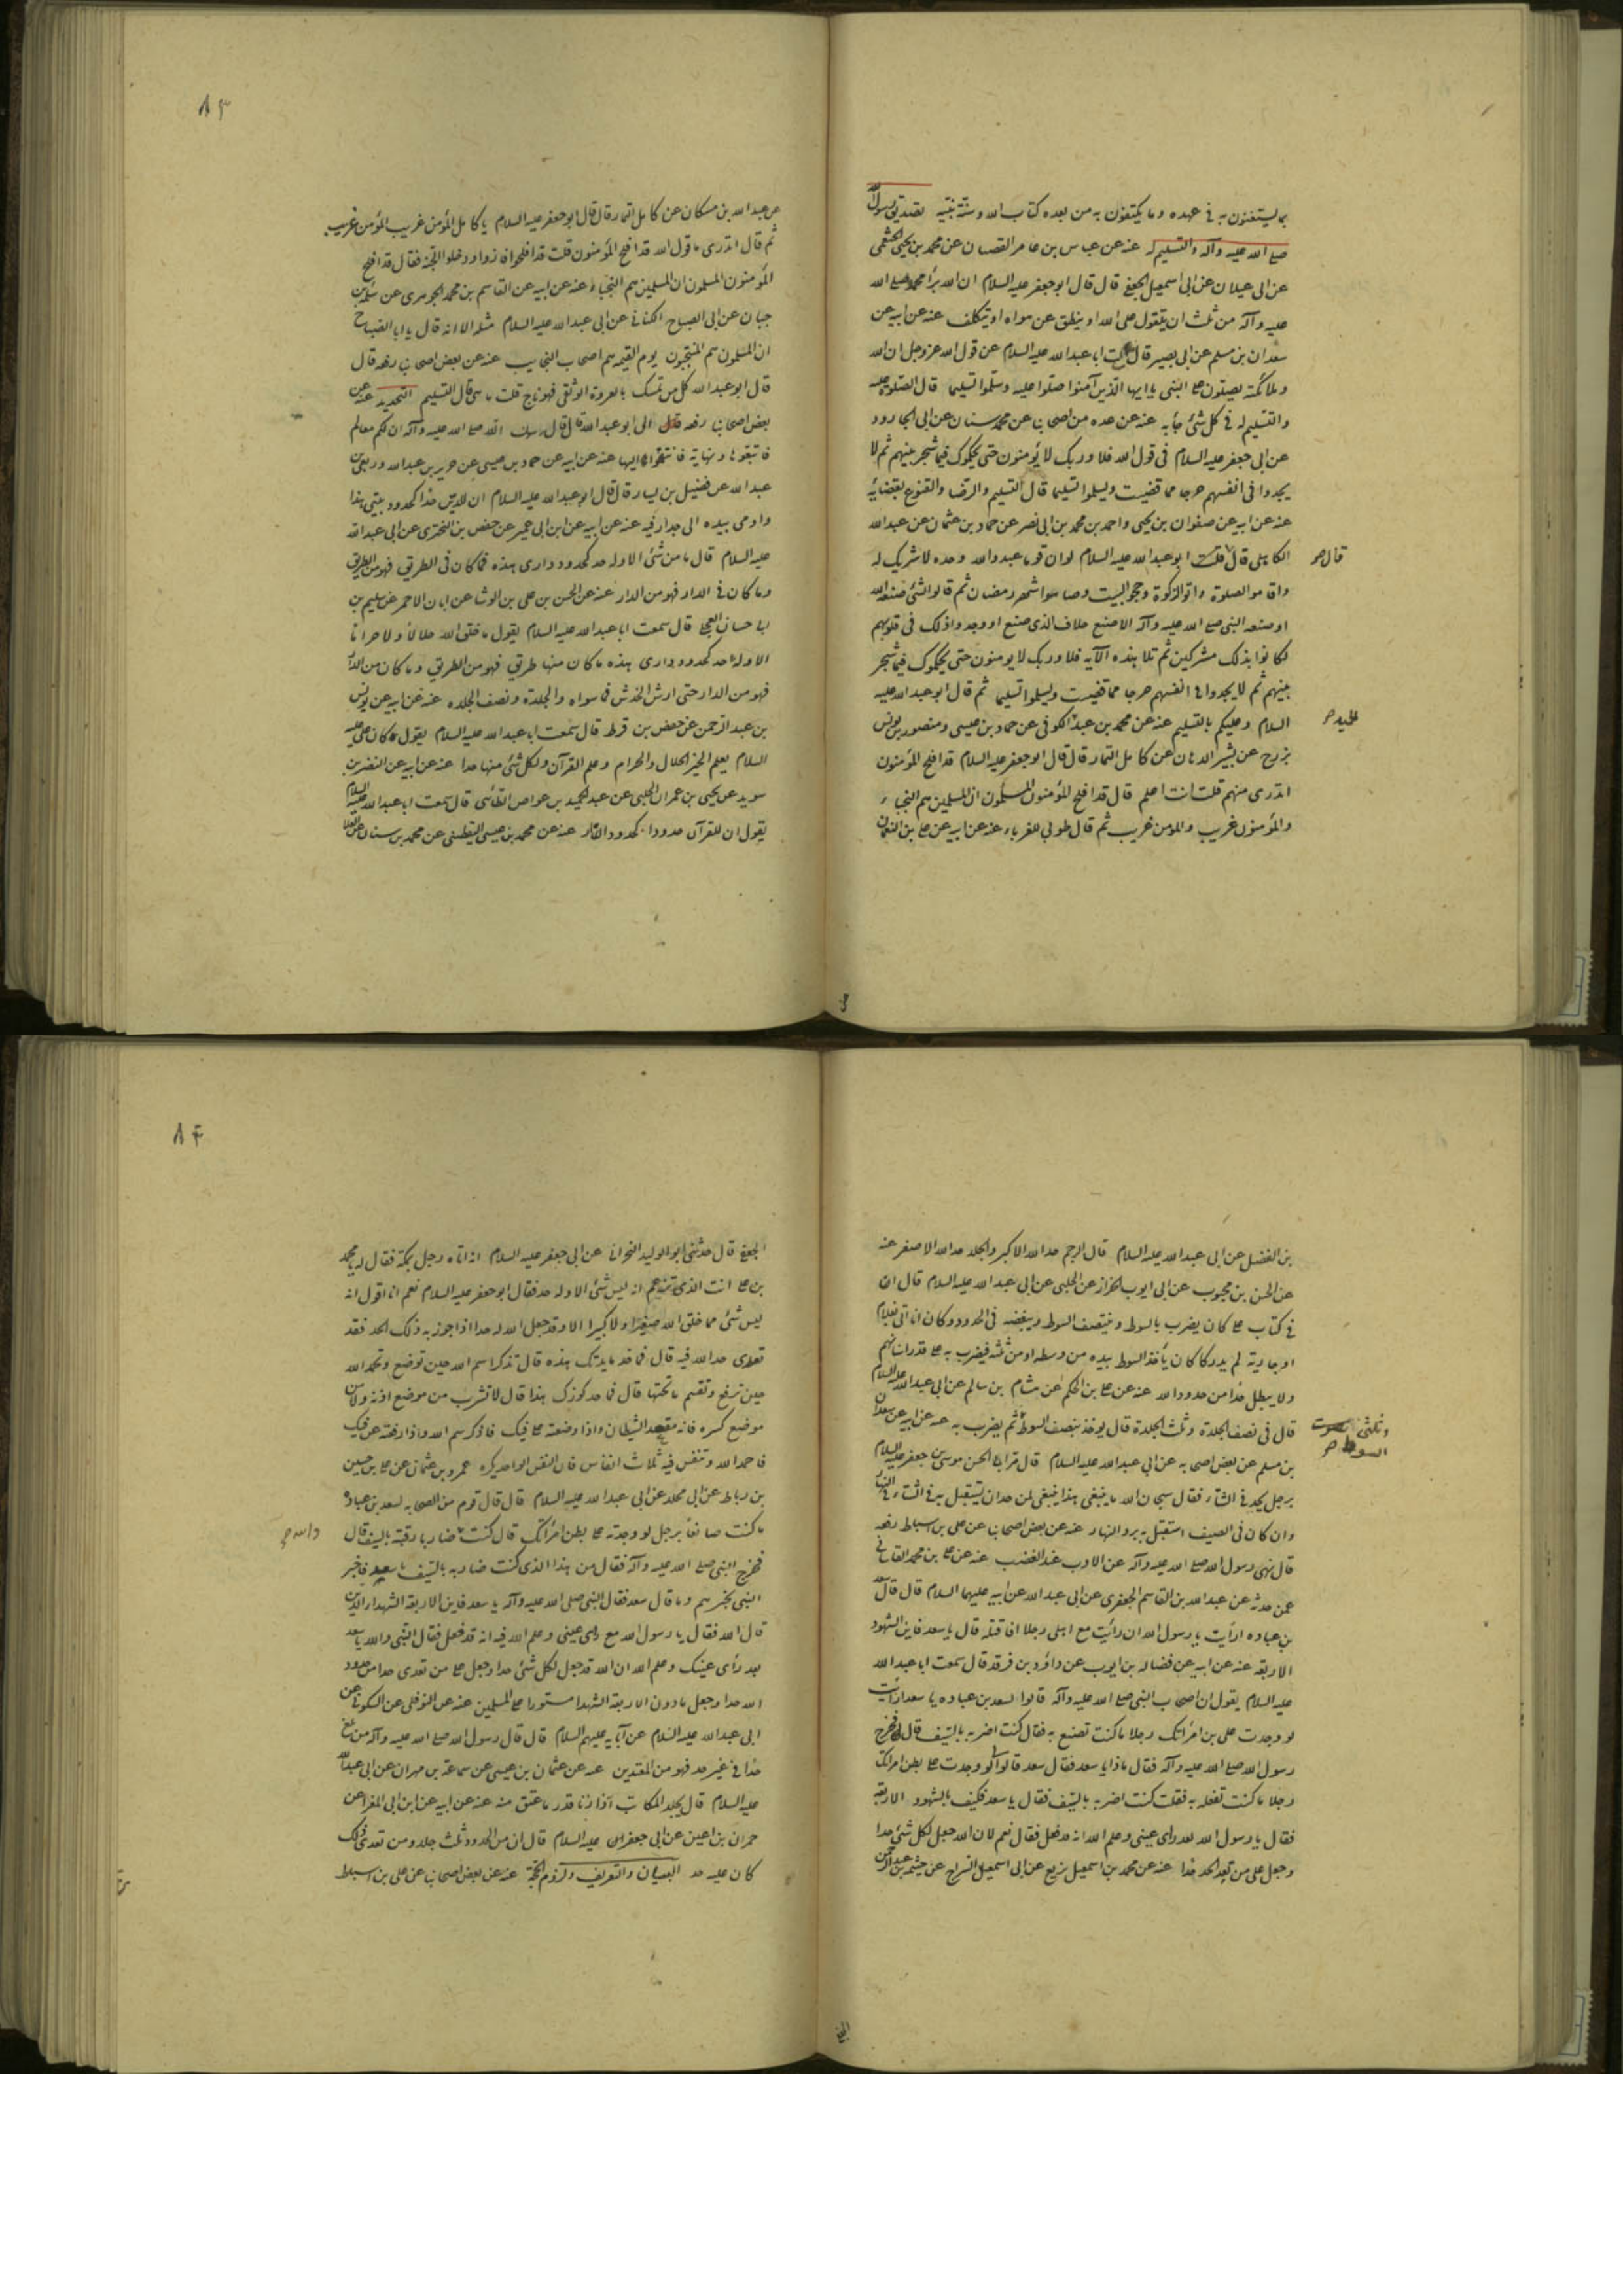 بما يستغنون به في عهده وما يكتفون به من بعده كتاب الله وسنة نبيه تصديق رسول الله
صلى الله عليه وآله والتسليم له عنه عن عباس بن عامر القصبانى عن محمد بن يحيى الخثعمى
عن ابى غيلان عن ابى اسمعيل الجعفى قال قال ابو جعفر عليه السلام ان الله برأ محمدا صلى الله
عليه وآله من ثلث ان يتقول على الله او ينطق عن هواه او يتكلف عنه عن ابيه عن
سعدان بن مسلم عن ابى بصير قال سألت ابا عبد الله عليه السلام عن قول الله عز وجل ان الله
وملائكته يصلون على النبى يا ايها الذين آمنوا صلوا عليه وسلموا تسليما قال الصلوة عليه
والتسليم له في كل شئ جاء به عنه عن عده من اصحابنا عن محمد بن سنان عن ابى الجارود
عن ابى جعفر عليه السلام فى قول الله فلا وربك لا يؤمنون حتى يحكموك فيما شجر بينهم ثم لا
يجدوا فى انفسهم حرجا مما قضيت ويسلموا تسليما قال التسليم والرضا والقنوع بقضائه
عنه عن ابيه عن صفوان بن يحيى واحمد بن محمد بن ابى نصر عن حماد بن عثمان عن عبد الله
الكاهلى قال قلت ابو عبد الله عليه السلام لو ان قوما عبدوا الله وحده لا شريك له
قال صح
واقاموا الصلوة واتوا الزكوة وحجوا البيت وصاموا شهر رمضان ثم قالوا لشئ صنعه الله
او صنعه النبى صلى الله عليه وآله الا صنع خلاف الذى صنع او وجدوا ذلك فى قلوبهم
لكانوا بذلك مشركين ثم تلا هذه الآية فلا وربك لا يومنون حتى يحكموك فيما شجر
بينهم ثم لا يجدوا فى انفسهم حرجا مما قضيت ويسلموا تسليما ثم قال ابو عبد الله عليه
السلام وعليكم بالتسليم عنه عن محمد بن عبد الكوفى عن حماد بن عيسى ومنصور بن يونس
بزرج عن بشير الدهان عن كامل التمار قال قال ابو جعفر عليه السلام قد افلح المؤمنون
اتدرى منهم قلت انت اعلم قال قد افلح المؤمنون المسلمون ان المسلمين هم النجباء
والمؤمنون غريب والمومن غريب ثم قال طوبى للغرباء عنه عن ابيه عن على بن النعمان
٨٣
عن عبد الله بن مسكان عن كامل التمار قال قال ابو جعفر عليه السلام يا كامل المؤمن غريب المؤمن غريب
ثم قال اتدرى ما قول الله قد افلح المؤمنون قلت قد افلحوا فازوا ودخلوا الجنة فقال قد افلح
المؤمنون المسلمون ان المسلمين هم النجباء وعنه عن ابيه عن القاسم بن محمد الجوهرى عن سلمة بن
حيان عن ابى الصباح الكنانى عن ابى عبد الله عليه السلام مثله الا انه قال يا ابا الصباح
ان المسلمون هم المنتجبون يوم القيمه هم اصحاب النجايب عنه عن بعض اصحابنا رفعه قال
قال ابو عبد الله كل من تمسك بالعروة الوثقى فهو ناج قلت ما هى قال التسليم التحديد عنه عن
بعض اصحابنا رفعه الى ابو عبد الله قال قال رسول الله صلى الله عليه وآله ان لكم معالم
فاتبعوها ونهاية فانتهوا اليها عنه عن ابيه عن حماد بن عيسى عن حريز بن عبد الله وربعى بن
عبد الله عن فضيل بن يسار قال قال ابو عبد الله عليه السلام ان للدين حدا كحدود بيتى هذا
واومى بيده الى جدار فيه عنه عن ابيه عن ابن ابى عمير عن حفص بن البخترى عن ابى عبد الله
عليه السلام قال ما من شئ الا وله حد كحدود دارى هذه فما كان فى الطريق فهو من الطريق
وما كان فى الدار فهو من الدار عنه عن الحسن بن على بن الوشا عن ابان الاحمر عن سليم بن
ابى حسان العجلى قال سمعت ابا عبد الله عليه السلام يقول ما خلق الله حلالا ولا حراما
الا وله حد كحدود دارى هذه ما كان منها طريق فهو من الطريق وما كان من الدار
فهو من الدار حتى ارش الخدش فما سواه والجلدة ونصف الجلده عنه عن ابيه عن يونس
بن عبد الرحمن عن حفص بن قرط قال سمعت ابا عبد الله عليه السلام يقول كان على عليه
السلام يعلم الخبر الحلال والحرام وعلم القرآن ولكل شئ منها حدا عنه عن ابيه عن النضر بن
سويد عن يحيى بن عمران الحلبى عن عبد الحميد بن عواض الطائى قال سمعت ابا عبد الله عليه السلام
يقول ان للقرآن حدودا كحدود الدار عنه عن محمد بن عيسى اليقطينى عن محمد بن سنان عن العلا
بن الفضيل عن ابى عبد الله عليه السلام قال الرجم حد الله الاكبر والجلد حد الله الاصغر عنه
عن الحسن بن محبوب عن ابى ايوب الخزاز عن الحلبى عن ابى عبد الله عليه السلام قال ان
فى كتاب على كان يضرب بالسوط وبنصف السوط وببعضه فى الحدود وكان اذا اتى بغلام
او جارية لم يدركا كان يأخذ السوط بيده من وسطه او من ثلثه فيضرب به على قدر اسنانهم
ولا يبطل حدا من حدود الله عنه عن على بن الحكم عن هشام بن سالم عن ابى عبد الله عليه السلام
قال فى نصف الجلدة وثلث الجلدة قال يوخذ بنصف السوط ثم يضرب به عنه عن ابيه عن سعدان
وثلثى السوط صح
بن مسلم عن بعض اصحابه عن ابى عبد الله عليه السلام قال مر ابى الحسن موسى بن جعفر عليه السلام
برجل يحد فى الشتاء فقال سبحان الله ما ينبغى هذا ينبغى لمن حد ان يستقبل به فى الشتاء فى النهار
وان كان فى الصيف استقبل به برد النهار عنه عن بعض اصحابنا عن على بن اسباط رفعه
قال نهى رسول الله صلى الله عليه وآله عن الادب عند الغضب عنه عن على بن محمد القاسانى
عمن حدثه عن عبد الله بن القاسم الجعفرى عن ابى عبد الله عن ابيه عليهما السلام قال قال سعد
بن عباده ارأيت يا رسول الله ان رأيت مع اهلى رجلا افاقتله قال يا سعد فاين الشهود
الاربعة عنه عن ابيه عن فضاله بن ايوب عن داود بن فرقد قال سمعت ابا عبد الله
عليه السلام يقول ان اصحاب النبى صلى الله عليه وآله قالوا لسعد بن عباده يا سعد ارأيت
لو وجدت على بن امرأتك رجلا ما كنت تصنع به فقال كنت اضربه بالسيف قال فخرج
رسول الله صلى الله عليه وآله فقال ماذا يا سعد فقال سعد قالوا لو وجدت على بطن امراتك
رجلا ما كنت تفعل به فقلت كنت اضربه بالسيف فقال يا سعد فكيف بالشهود الاربعة
فقال يا رسول الله بعد راى عينى وعلم الله انه قد فعل فقال نعم لان الله جعل لكل شئ حدا
وجعل على من تعد الحد حدا عنه عن محمد بن اسمعيل بزيع عن ابى اسمعيل السراج عن خيثمة بن عبد الرحمن
الجعفى
٨٤
الجعفى قال حدثنى ابو الوليد النجرانى عن ابى جعفر عليه السلام انه اتاه رجل بمكة فقال له يا محمد
بن على انت الذى تزعم انه ليس شئ الا وله حد فقال ابو جعفر عليه السلام نعم انا اقول انه
ليس شئ مما خلق الله صغيرا ولا كبيرا الا وقد جعل الله له حدا اذا جوز به ذلك الحد فقد
تعدى حد الله فيه قال فما حد مايدتك هذه قال تذكر اسم الله حين توضع وتحمد الله
حين ترفع وتقم ما تحتها قال فما حد كوزك هذا قال لا تشرب من موضع اذنه ولا من
موضع كسره فانه مقعد الشيطان واذا وضعته على فيك فاذكر اسم الله واذا رفعته عن فيك
فاحمد الله وتنفس فيه ثلاث انفاس فان النفس الواحد يكره عمرو بن عثمان عن على بن حسين
بن رباط عن ابى مخلد عن ابى عبد الله عليه السلام قال قال قوم من الصحابه لسعد بن عباده
ما كنت صانعا برجل لو وجدته على بطن امرأتك قال كنت ضاربا رقبته بالسيف قال
والله صح
فخرج النبى صلى الله عليه وآله فقال من هذا الذى كنت ضاربه بالسيف يا سعد فاخبر
النبى بخبرهم وما قال سعد فقال النبى صلى الله عليه وآله يا سعد فاين الاربعة الشهداء الذين
قال الله فقال يا رسول الله مع راى عينى وعلم الله فيه انه قد فعل فقال النبى والله يا سعد
بعد رأى عينك وعلم الله ان الله قد جعل لكل شئ حدا وجعل على من تعدى حدا من حدود
الله حدا وجعل ما دون الاربعة الشهدا مستورا على المسلمين عنه عن النوفلى عن السكونى عن
ابى عبد الله عليه السلام عن آبايه عليهم السلام قال قال رسول الله صلى الله عليه وآله من بلغ
حدا فى غير حد فهو من المعتدين عنه عن عثمان بن عيسى عن سماعة بن مهران عن ابى عبد الله
عليه السلام قال يجلد المكاتب اذا زنا قدر ما عتق منه عنه عن ابيه عن ابن ابى المغرا عن
حمران بن اعين عن ابى جعفر عليه السلام قال ان من الحدود ثلث جلد ومن تعدى ذلك
كان عليه حد البيان والتعريف ولزوم الحجة عنه عن بعض اصحابنا عن على بن اسباط